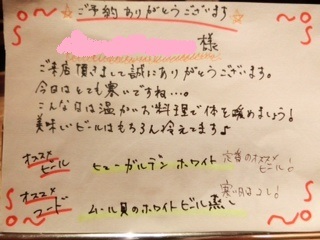 ☆ご予約ありがとうございます☆
様
ご来店頂きまして誠にありがとうございます。
今日はとても寒いですね…。
こんな日は温かいお料理で体を暖めましょう！
美味しいビールはもちろん冷えてます♪
オススメビール ヒューガルデンホワイト 定番のオススメビール！
オススメフード ムール貝のホワイトビール蒸し 寒い日はコレ！